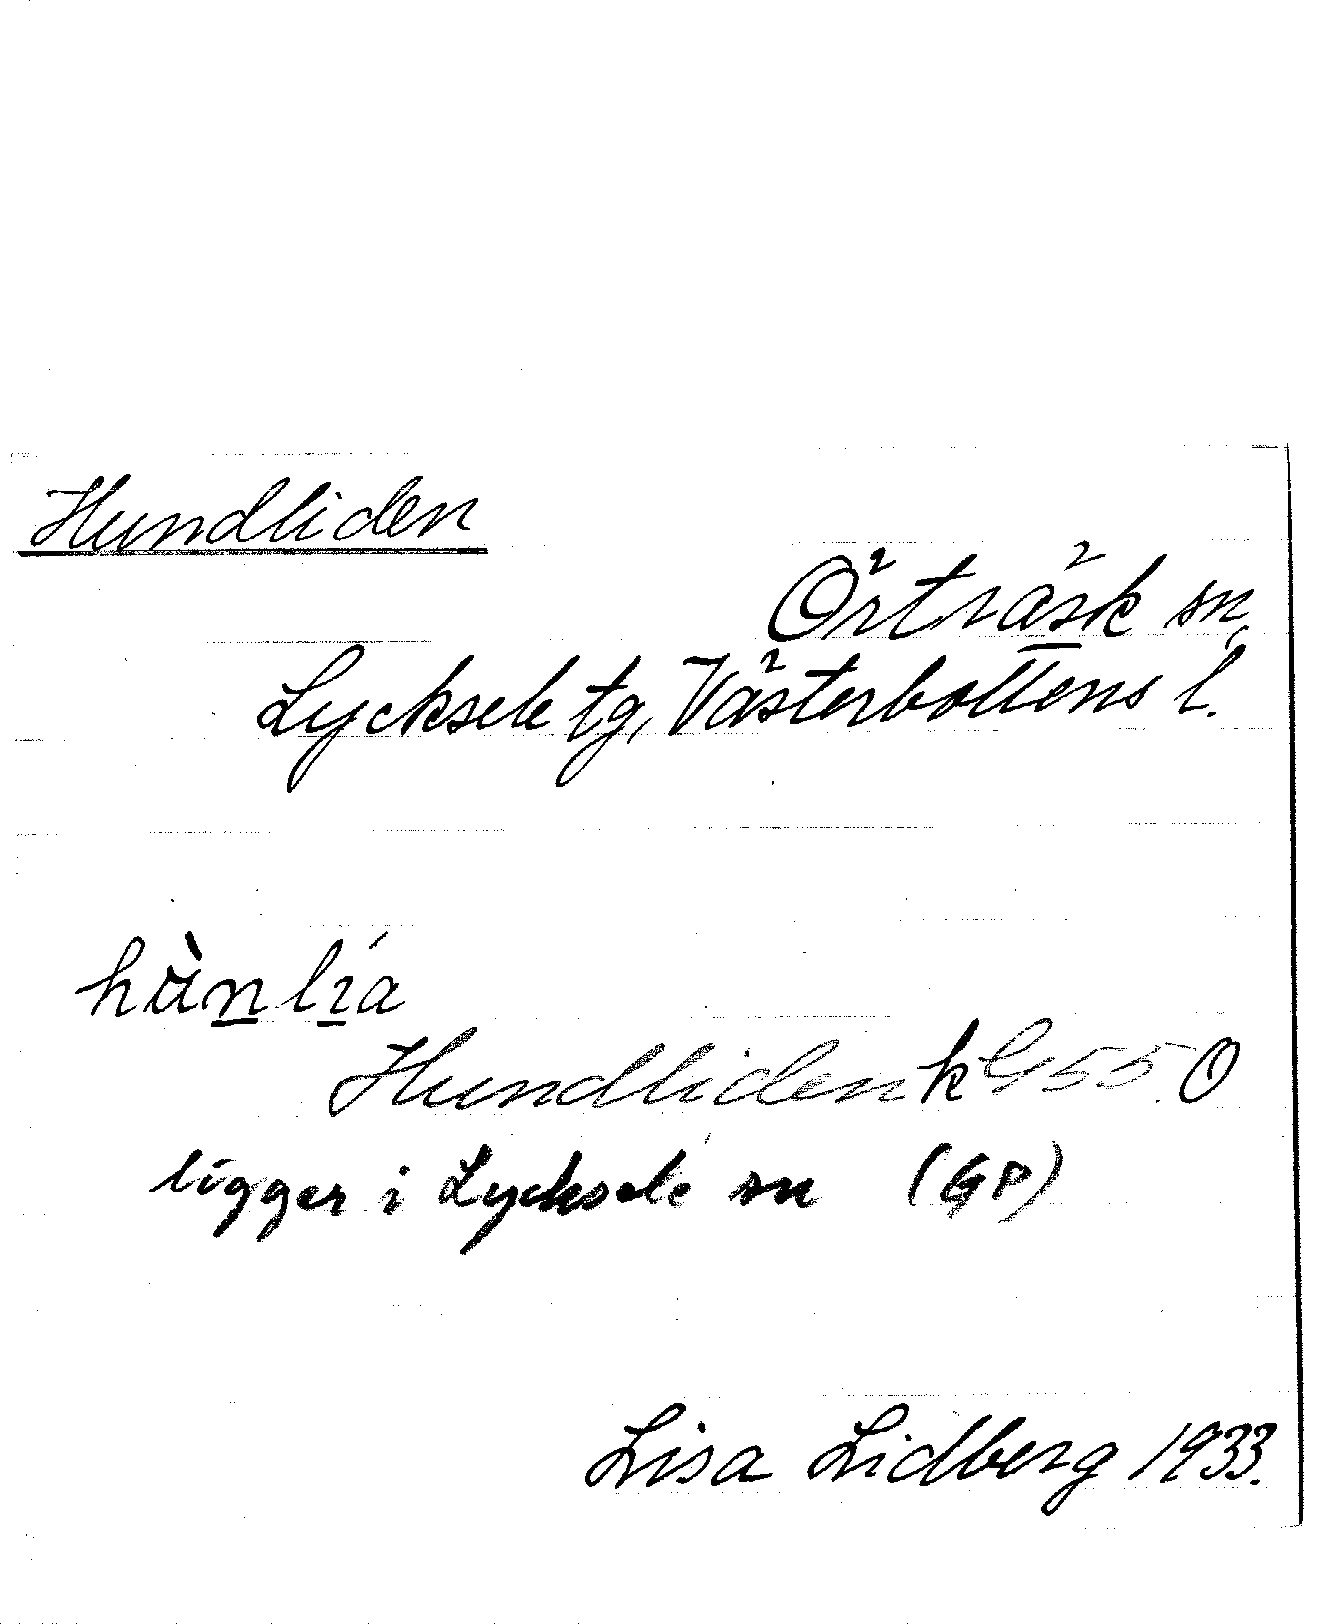 Hundliden
Örträsk sn,
Lycksele tg, Västerbottens l.
hùnlía
Hundliden k G 55 O
ligger i Lycksele sn (GP)
Lisa Lidberg 1933.